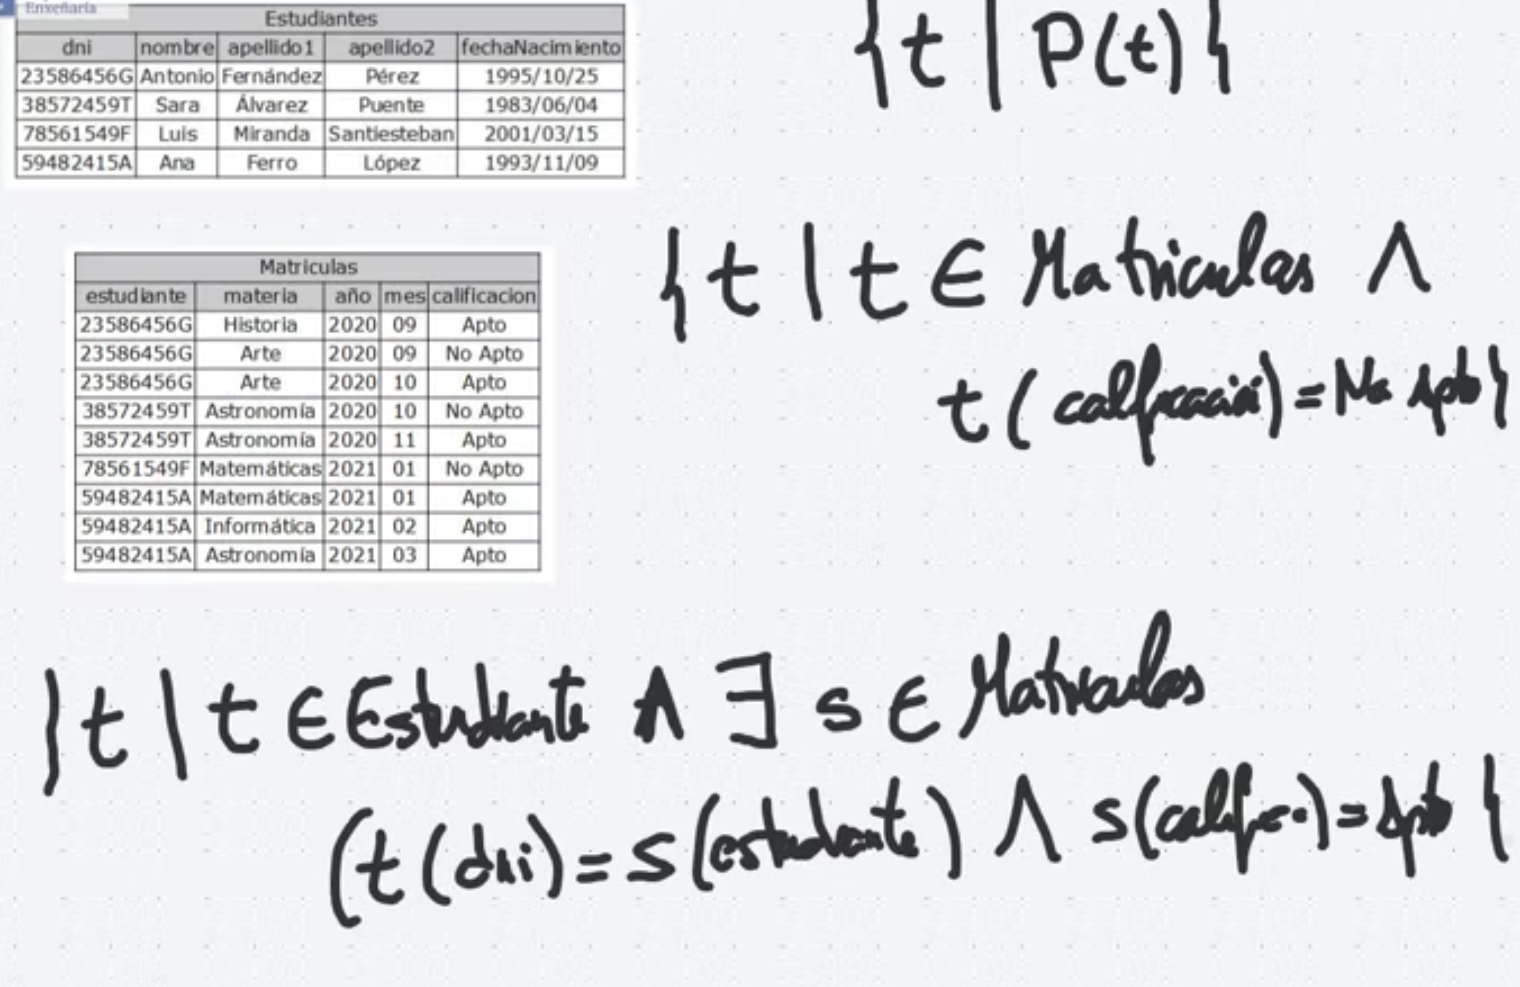 Enxeñaría
Estudiantes
dni nombre apellido1 apellido2 fechaNacimiento
23586456G Antonio Fernández Pérez 1995/10/25
38572459T Sara Álvarez Puente 1983/06/04
78561549F Luis Miranda Santiesteban 2001/03/15
59482415A Ana Ferro López 1993/11/09
{t | P(t)}
Matriculas
estudiante materia año mes calificacion
23586456G Historia 2020 09 Apto
23586456G Arte 2020 09 No Apto
23586456G Arte 2020 10 Apto
38572459T Astronomía 2020 10 No Apto
38572459T Astronomía 2020 11 Apto
78561549F Matemáticas 2021 01 No Apto
59482415A Matemáticas 2021 01 Apto
59482415A Informática 2021 02 Apto
59482415A Astronomía 2021 03 Apto
{t | t ∈ Matriculas ∧
t(calificación) = No Apto}
{t | t ∈ Estudiante ∧ ∃ s ∈ Matriculas
(t(dni) = s(estudiante) ∧ s(calific..) = Apto}